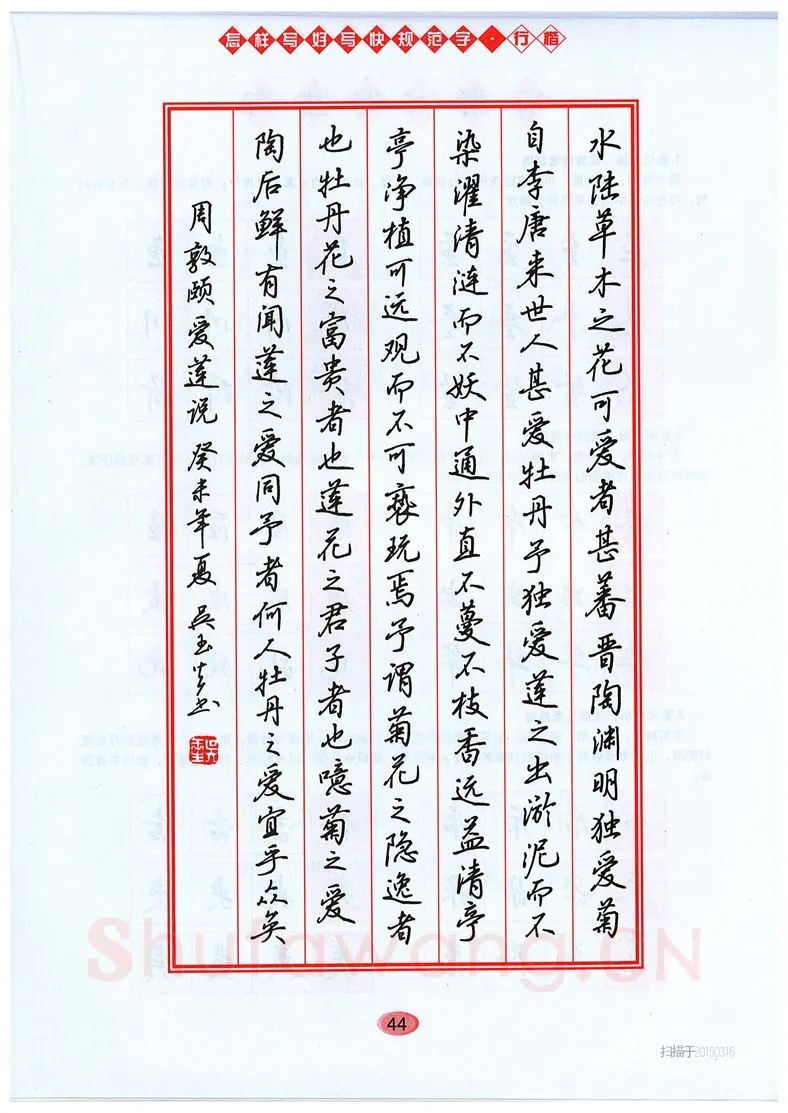 怎样写好写快规范字·行楷
水陆草木之花可爱者甚蕃晋陶渊明独爱菊
自李唐来世人甚爱牡丹予独爱莲之出淤泥而不
染濯清涟而不妖中通外直不蔓不枝香远益清亭
亭净植可远观而不可亵玩焉予谓菊花之隐逸者
也牡丹花之富贵者也莲花之君子者也噫菊之爱
陶后鲜有闻莲之爱同予者何人牡丹之爱宜乎众矣
周敦颐爱莲说 癸未年夏 吴玉生书
Shufawang.CN
44
扫描于20150316